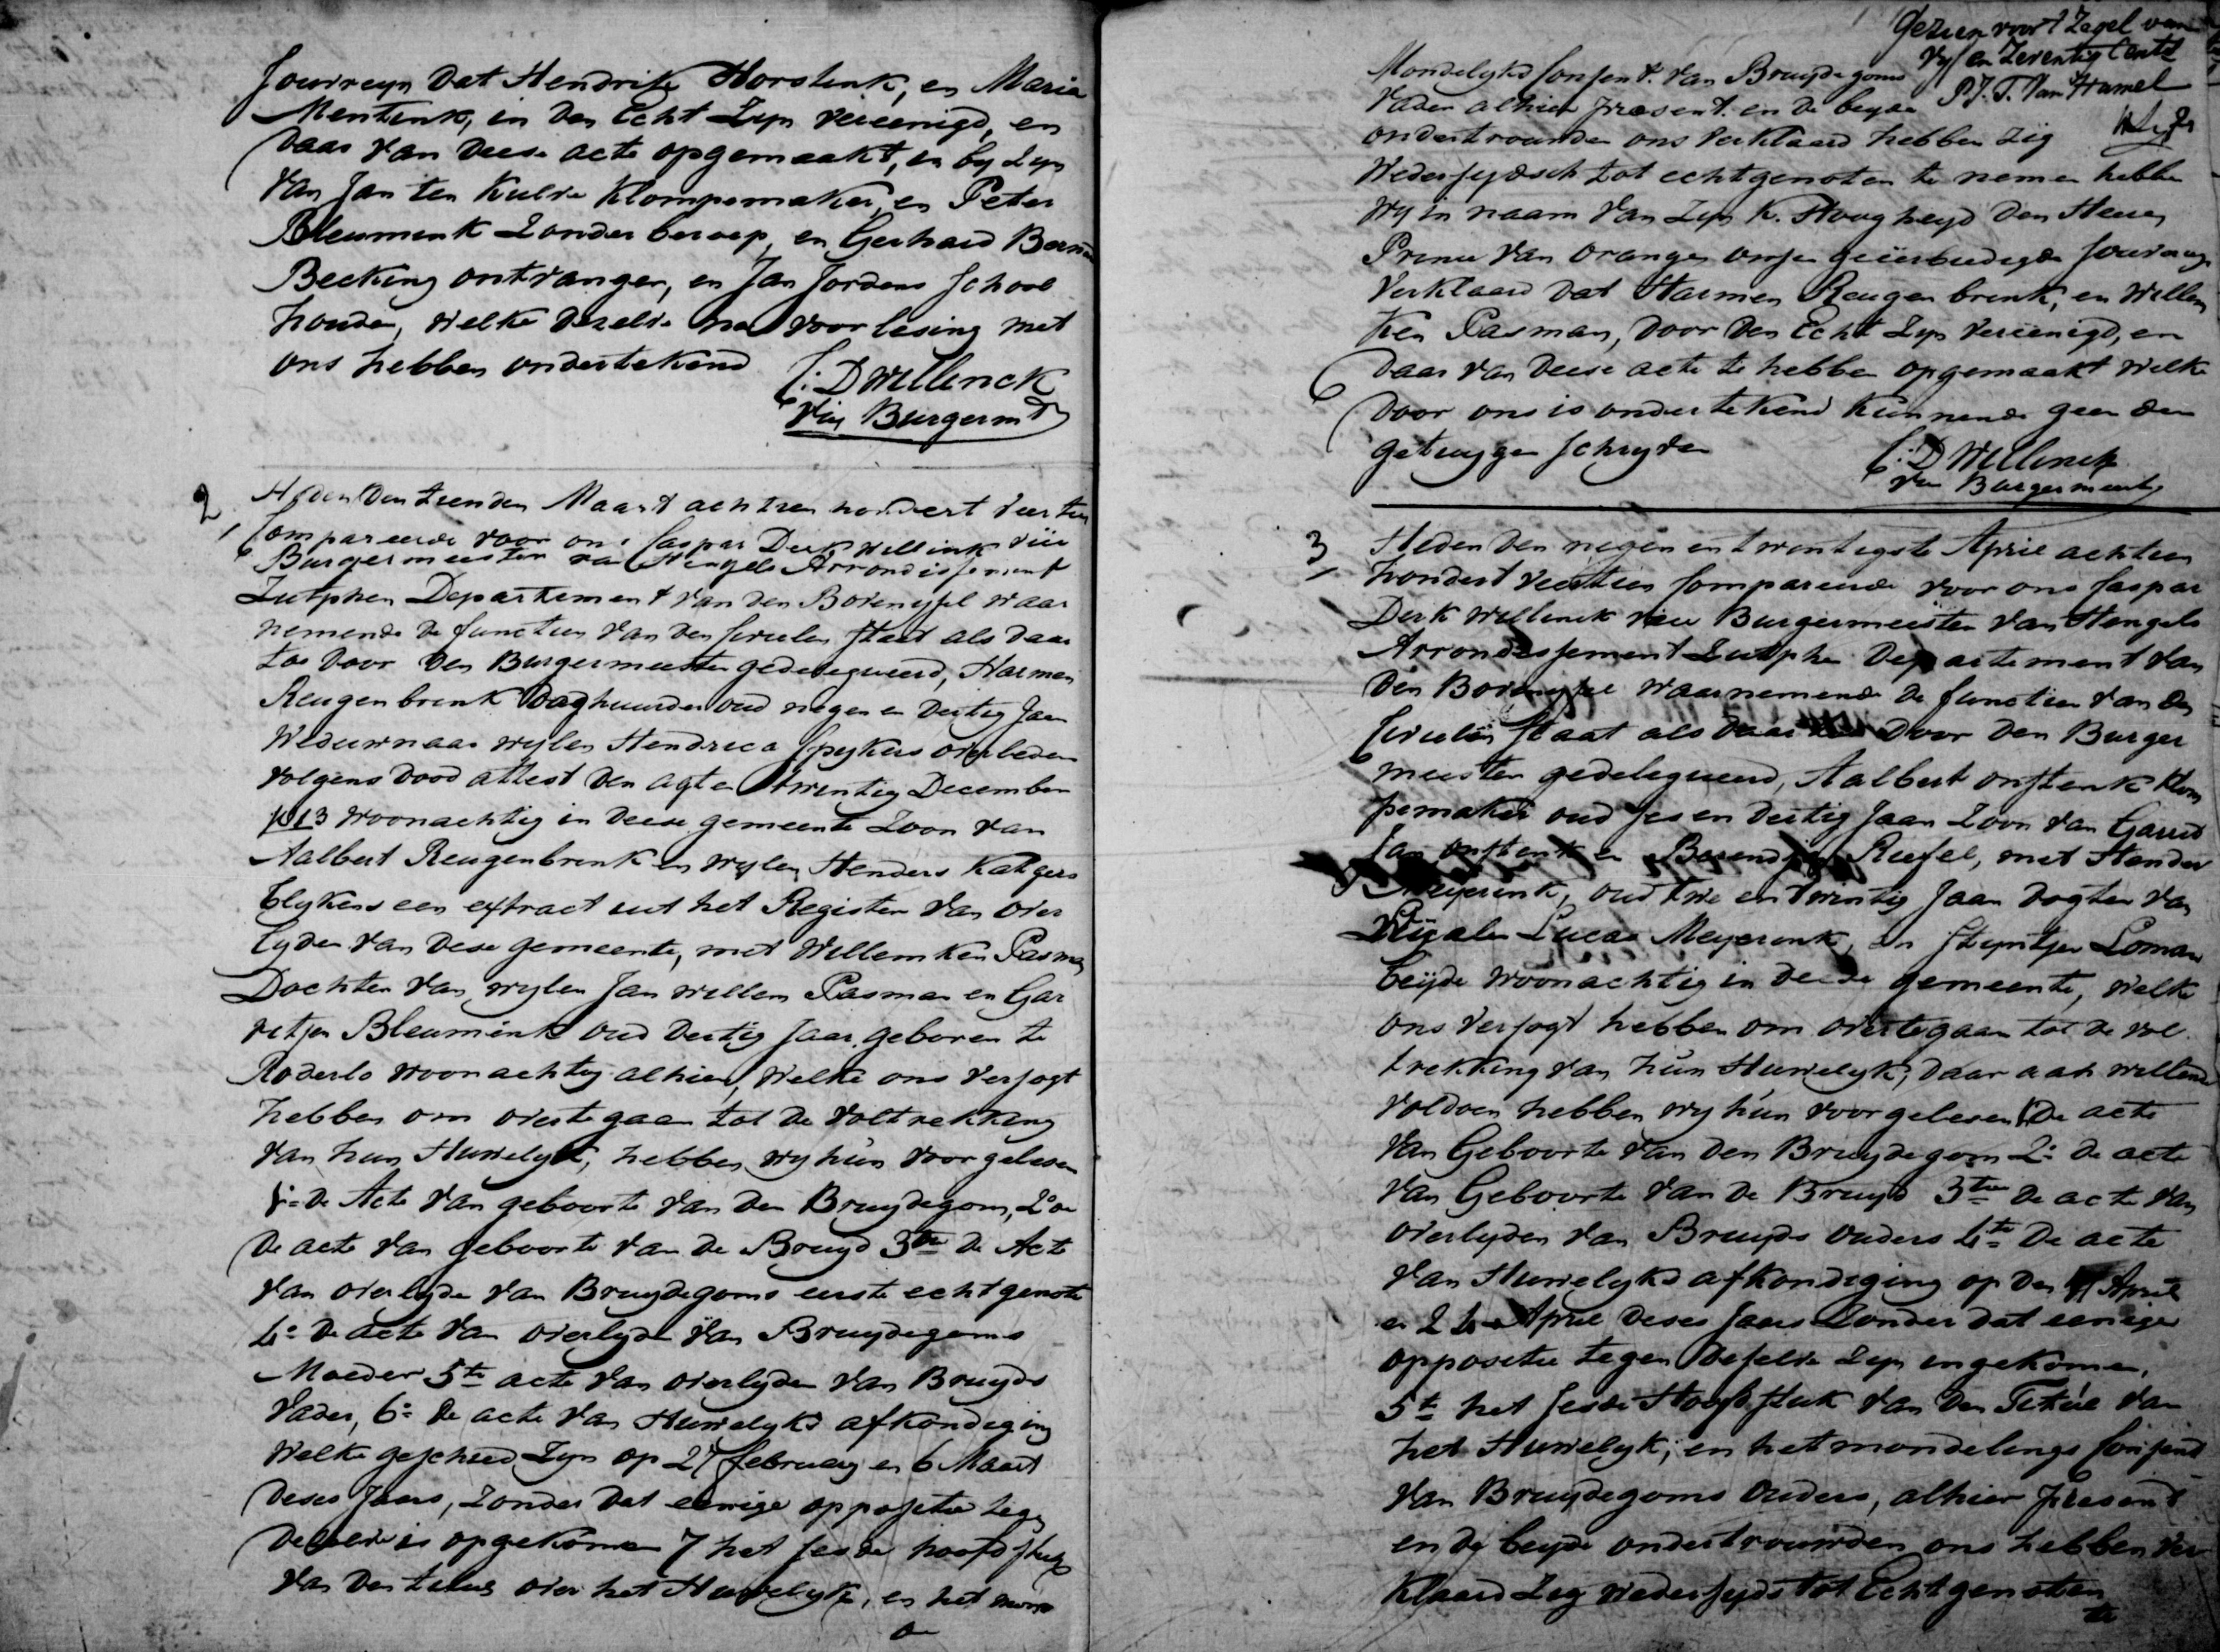 Souvreyn dat Hendrik Horstink, en Maria
Mentink, in den Echt Zyn vereenigd, en
daar van deese acte opgemaakt, en by Zyn
van Jan ten Kulve Klompemaker, en Peter
Bleumink Zonder beroep, en Gerhard
Becking ontvanger, en Jan Jordens School
houder, welke deselve na voorlesing met
ons hebben ondertekend
C: D Willinck
Vice Burgerm
2 Heden den tienden Maart achtien hondert veertien
Compareerde voor ons Caspar Derk Willink vice
Burgermeester van Hengelo Arrondissement
Zutphen Departement van den Bovenyssel waar
nemende de functien van den Civielen staat als daar
toe door den Burgermeester gedelegueerd, Harmen
Reugenbrink Daghuurder oud negen en dertig Jaar
Weduwnaar wylen Hendrica Spykers overleden
volgens dood attest den agt en twintig December
1813 woonachtig in deese gemeente Zoon van
Aalbert Reugenbrink en wylen Henders Katgers
blykens een extract uit het Register van over
lyden van dese gemeente, met Willemken Pasman
Dochter van wylen Jan Willem Pasman en Gar
retjen Bleumink oud dertig Jaar geboren te
Roderlo woonachtig alhier, welke ons versogt
hebben om overtegaan tot de voltrekking
van hun Huwelyk, hebben wy hun voorgelesen
1: de Acte van geboorte van den Bruydegom, 2
de acte van geboorte van de Bruyd 3de de Acte
van overlyde van Bruydegoms eerste echtgenote
4: de acte van overlyde van Bruydegoms
Moeder 5te acte van overlyden van Bruyds
Vader, 6: de acte van Huwelyks afkondiging
welke geschied Zyn op 27 february en 6 Maart
deses Jaars, zonder dat eenige oppositie tegen
deselve is opgekomen 7 het sesde hoofdstuk
van den titul over het Huwelyk, en het mon
de
Gezien voor 't Zegel van
Vyf en Zeventig Cents
P.J.T. Van Hamel
Mondelyks Consent van Bruydegoms
Vader alhier præsent. en de beyde
ondertrouwden ons verklaard hebben zig
Wederseydsch tot echtgenoten te nemen hebben
wy in naam van Zyn K. Hoogheyd den Heere
Prince van Orangen onse geëerbiedigde Souvreyn
Verklaard dat Harmen Reugenbrink, en Willem
ken Pasman, door den Echt Zyn vereenigd, en
daar van deese acte te hebben opgemaakt welke
door ons is ondertekend kunnende geen den
getuygen schryven
C: D Willinck
Vice Burgermeester
3 Heden den negen en twentigste April achtien
hondert veertien Compareerde voor ons Caspar
Derk Willinck vice Burgermeester van Hengelo
Arrondissement Zutphen Departement van
den Bovenyssel waarnemende de functien van den
Civielen staat als daar toe door den Burger
meester gedelegueerd, Aalbert onstenk Klom
pemaker oud ses en dertig Jaar Zoon van Garrit
Jan onstenk en Berendjen Reesel, met Hender
Meyerink, oud twe en twintig Jaar dogter van
Wylen Lucas Meyerink, en Steyntjen Loman
beyde woonachtig in deese gemeente, welke
ons versogt hebben om overtegaan tot de vol
trekking van hun Huwelyk, daar aan willende
voldoen hebben wy hun voorgelesen 1 de acte
van Geboorte van den Bruydegom 2: de acte
van Geboorte van de Bruyd 3de de acte van
overlyden van Bruyds ouders 4te de acte
van Huwelyks afkondiging op den 17 April
en 24 April deses Jaars Zonder dat eenige
oppositie tegen deselve Zyn ingekomen,
5te het sesde Hoofdstuk van den Titul van
het Huwelyk, en het mondelings Consent
van Bruydegoms Ouders, alhier præsent
en de beyde ondertrouwden ons hebben ver
klaard Zig wederseyds tot Echtgenoten
te